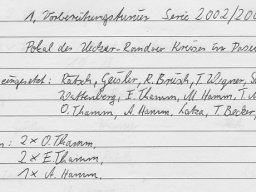 1. Vorbereitungsturnier Serie 2002/200
Pokal des Uecker-Randow Kreises in Pase
eingesetzt: Rätsch, Geisler, R. Brüsch, T. Wegner, S
Wattenberg, E. Thamm, M. Hamm, T.
O. Thamm, A. Hamm, Latza, T. Becker,
n: 2 x O. Thamm,
2 x E. Thamm,
1 x A. Hamm,